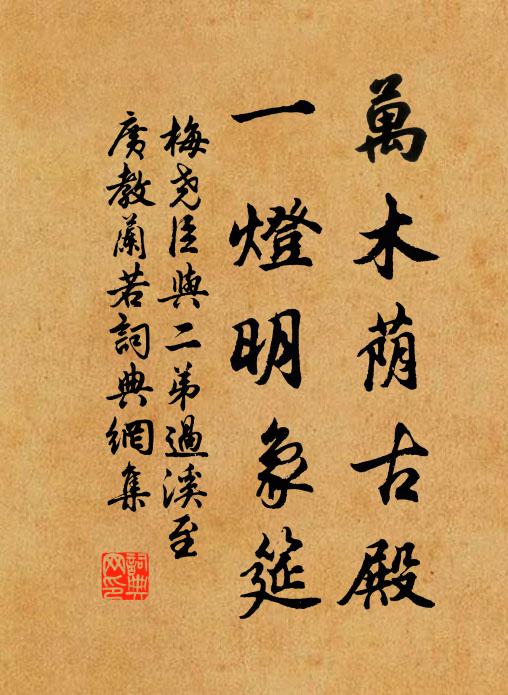 萬木荫古殿
一燈明象筵
梅尧臣與二弟過溪至
廣教蘭若詞典網集
詞典
网印